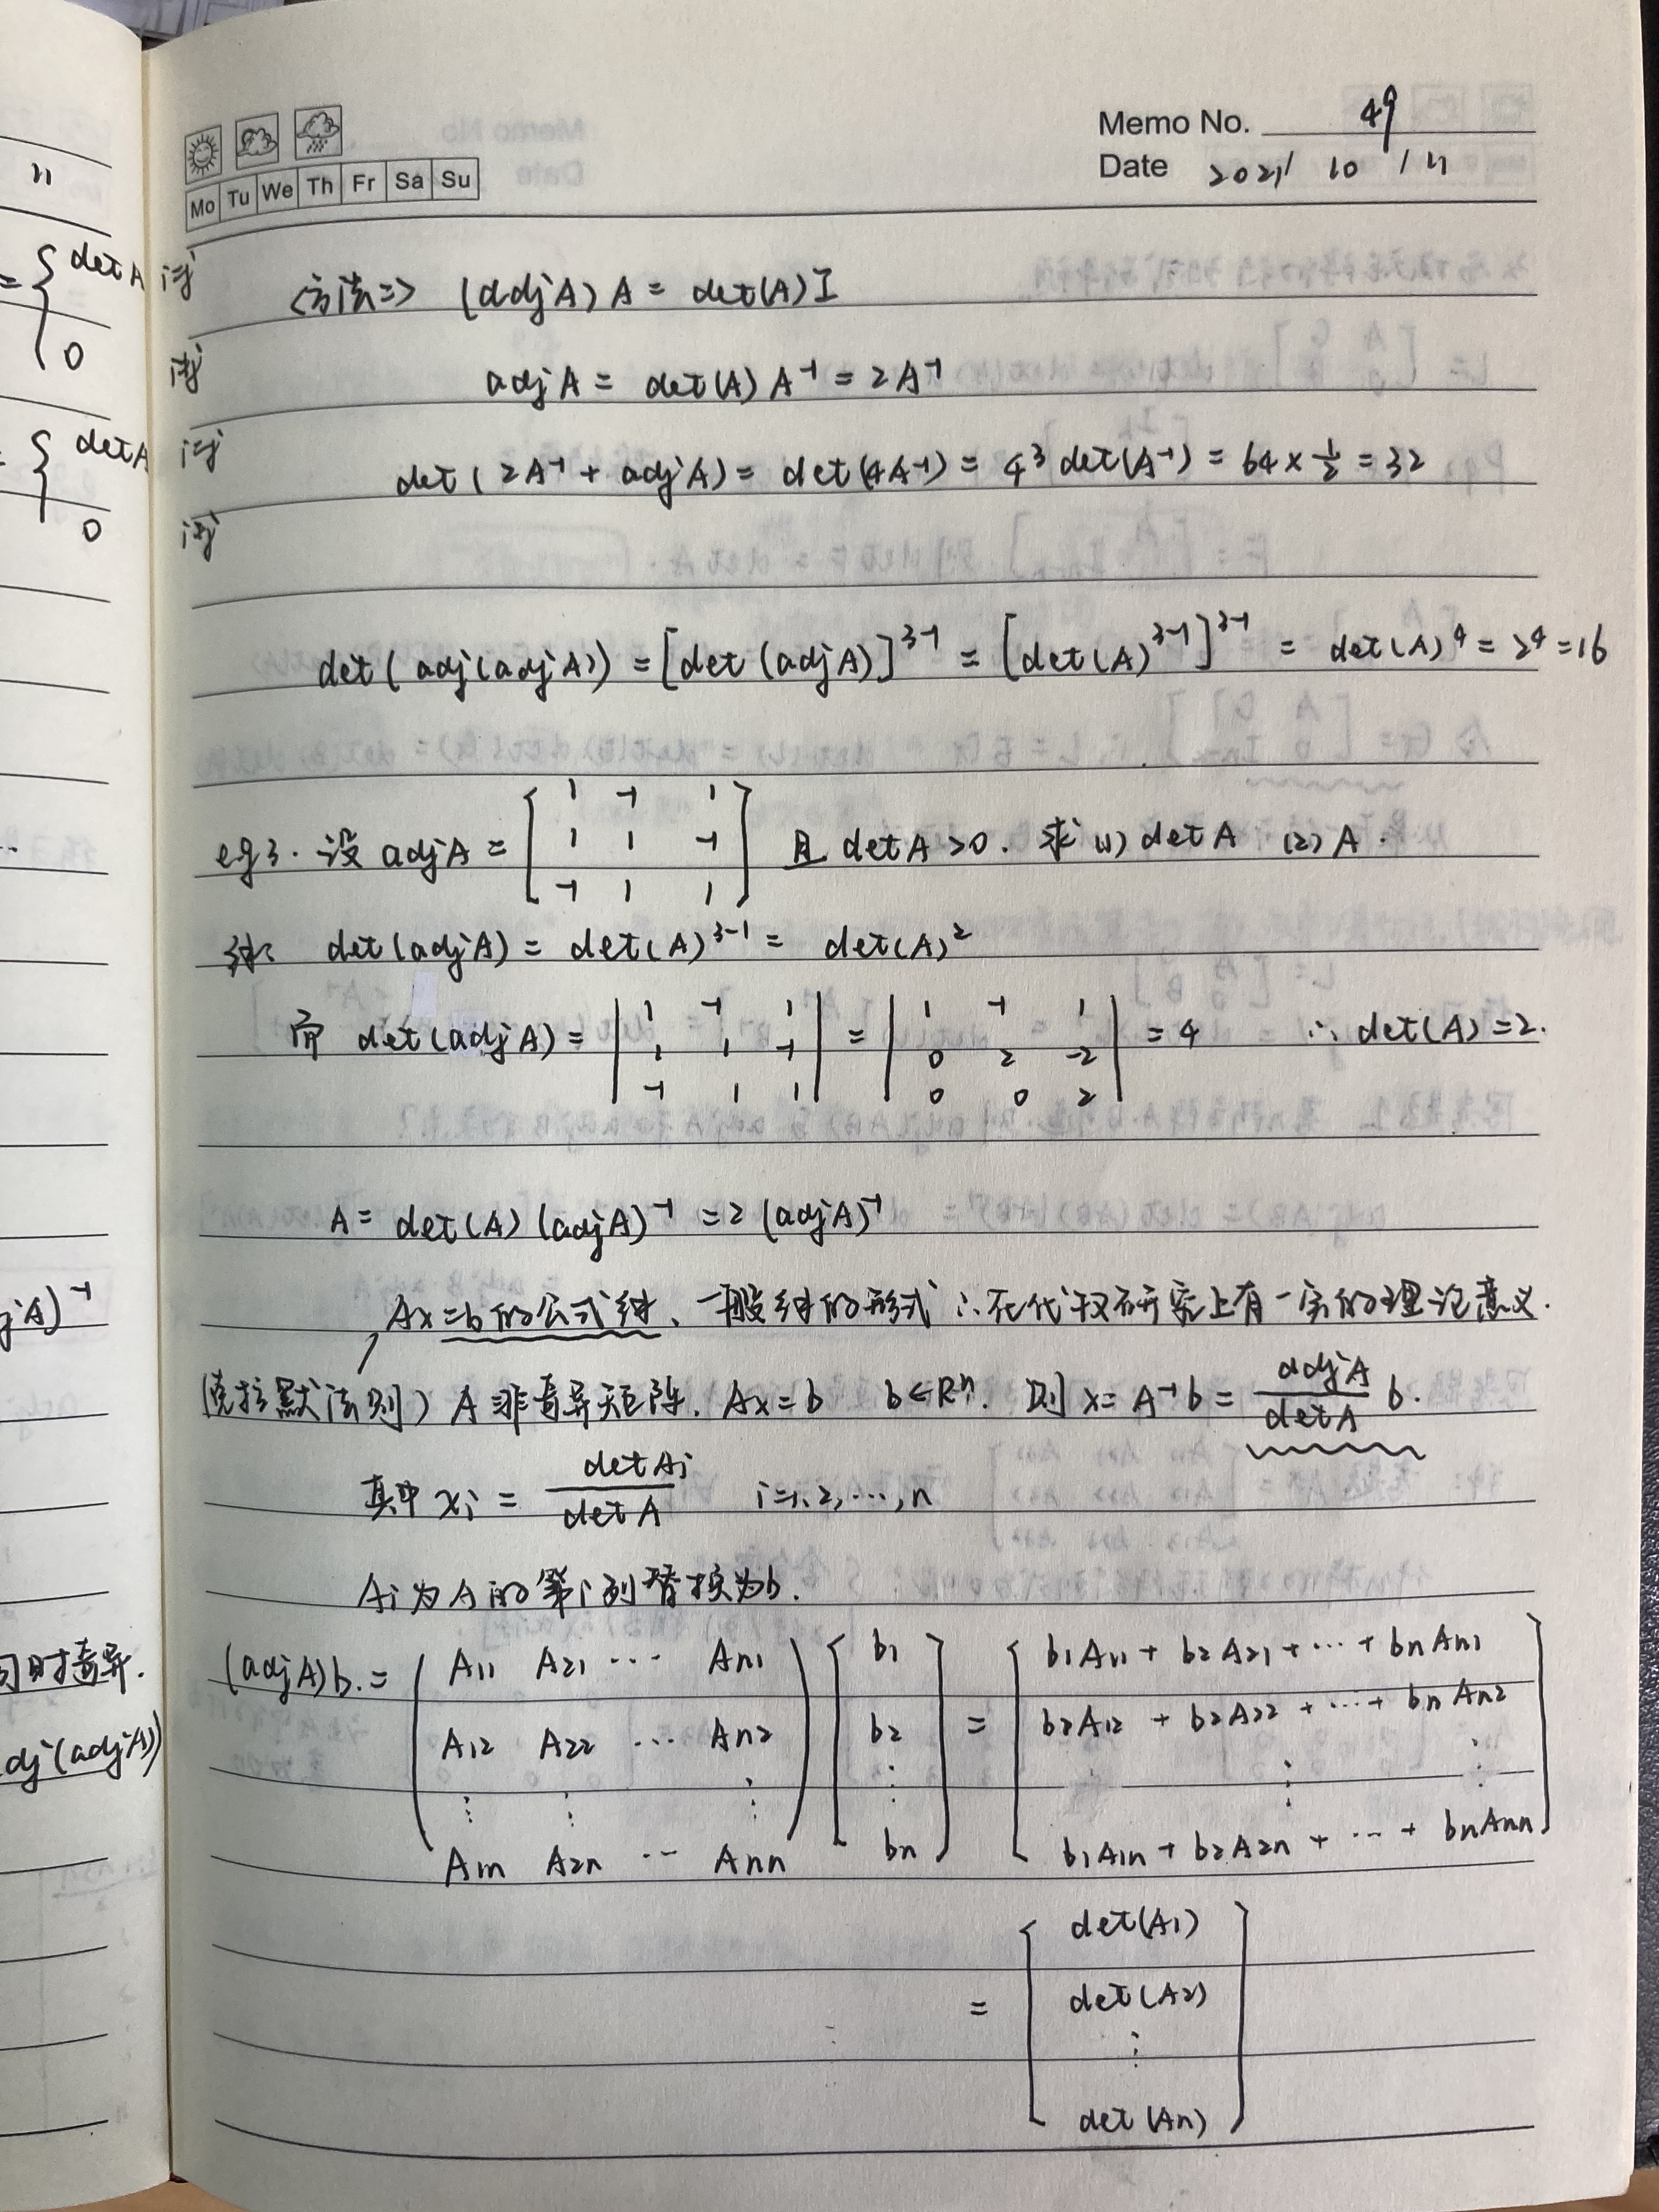 Memo No. 49
Date 2021/ 10 / 11
Mo Tu We Th Fr Sa Su
"
= { det A i=j
0 i≠j
= { det A i=j
0 i≠j
<方法二> (adjA) A = det(A) I
adj A = det(A) A⁻¹ = 2A⁻¹
det ( 2A⁻¹ + adj A) = det(4A⁻¹) = 4³ det(A⁻¹) = 64 × 1/2 = 32
det ( adj(adj A)) = [det (adj A)]³⁻¹ = [det(A)³⁻¹]³⁻¹ = det(A)⁴ = 2⁴ = 16
eg3. 设 adj A = [ 1 -1 1
1 1 -1
-1 1 1 ] 且 det A > 0. 求 (1) det A (2) A.
解: det (adj A) = det(A)³⁻¹ = det(A)²
而 det(adj A) = | 1 -1 1
1 1 -1
-1 1 1 | = | 1 -1 1
0 2 -2
0 0 2 | = 4 ∴ det(A) = 2.
A = det(A) (adjA)⁻¹ = 2 (adjA)⁻¹
Ax = b 的公式解、一般解的形式 ∴ 在代数研究上有一定的理论意义.
(克拉默法则) A 非奇异矩阵. Ax = b b∈Rⁿ. 则 x = A⁻¹ b = adjA / det A b.
其中 xi = det Ai / det A i=1,2,…,n
Ai 为 A 的第 i 列替换为b.
(adj A)b = ( A11 A21 ⋯ An1
A12 A22 ⋯ An2
⋮ ⋮ ⋮
A1n A2n ⋯ Ann ) [ b1
b2
⋮
bn ] = [ b1A11 + b2A21 + ⋯ + bnAn1
b2A12 + b2A22 + ⋯ + bnAn2
⋮ ⋮
b1A1n + b2A2n + ⋯ + bnAnn ]
= [ det(A1)
det(A2)
⋮
det(An) ]
jA)⁻¹
同时奇异.
dj(adjA)